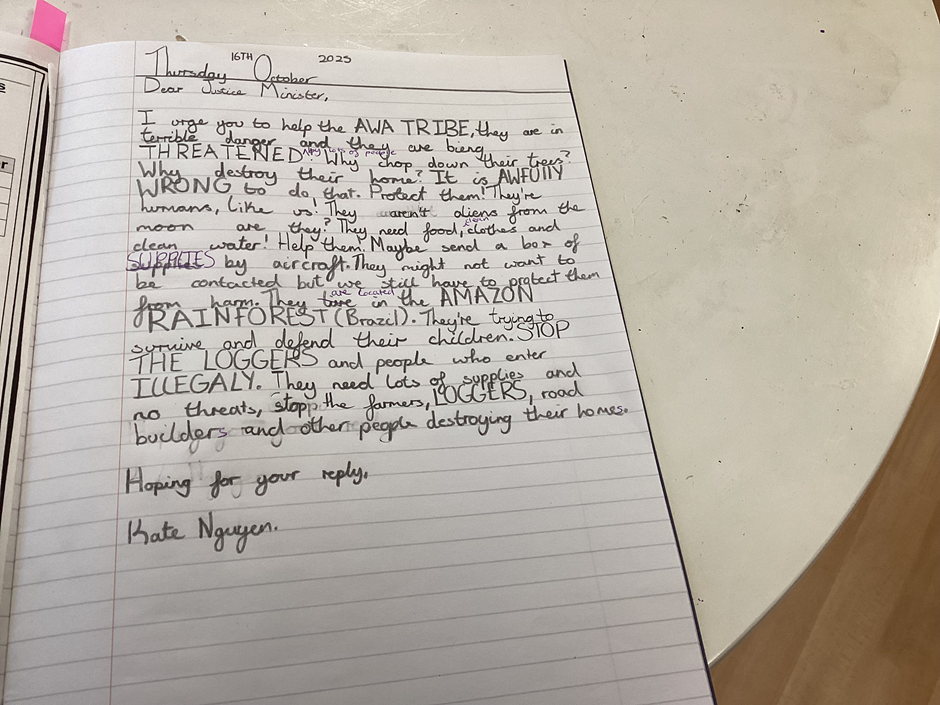 Thursday 16TH October 2025
Dear Justice Minister,
I urge you to help the AWA TRIBE, they are in
terrible danger and they are bieng
THREATENED by lots of people. Why chop down their trees?
Why destroy their home? It is AWFULLY
WRONG to do that. Protect them! They're
humans, like us! They aren't aliens from the
moon are they? They need food, clean clothes and
clean water! Help them! Maybe send a box of
SUPPLIES by aircraft. They might not want to
be contacted but we still have to protect them
from harm. They are located in the AMAZON
RAINFOREST (Brazil). They're trying to
survive and defend their children. STOP
THE LOGGERS and people who enter
ILLEGALY. They need lots of supplies and
no threats, stop the farmers, LOGGERS, road
builders and other people destroying their homes.
Hoping for your reply.
Kate Nguyen.
s
r